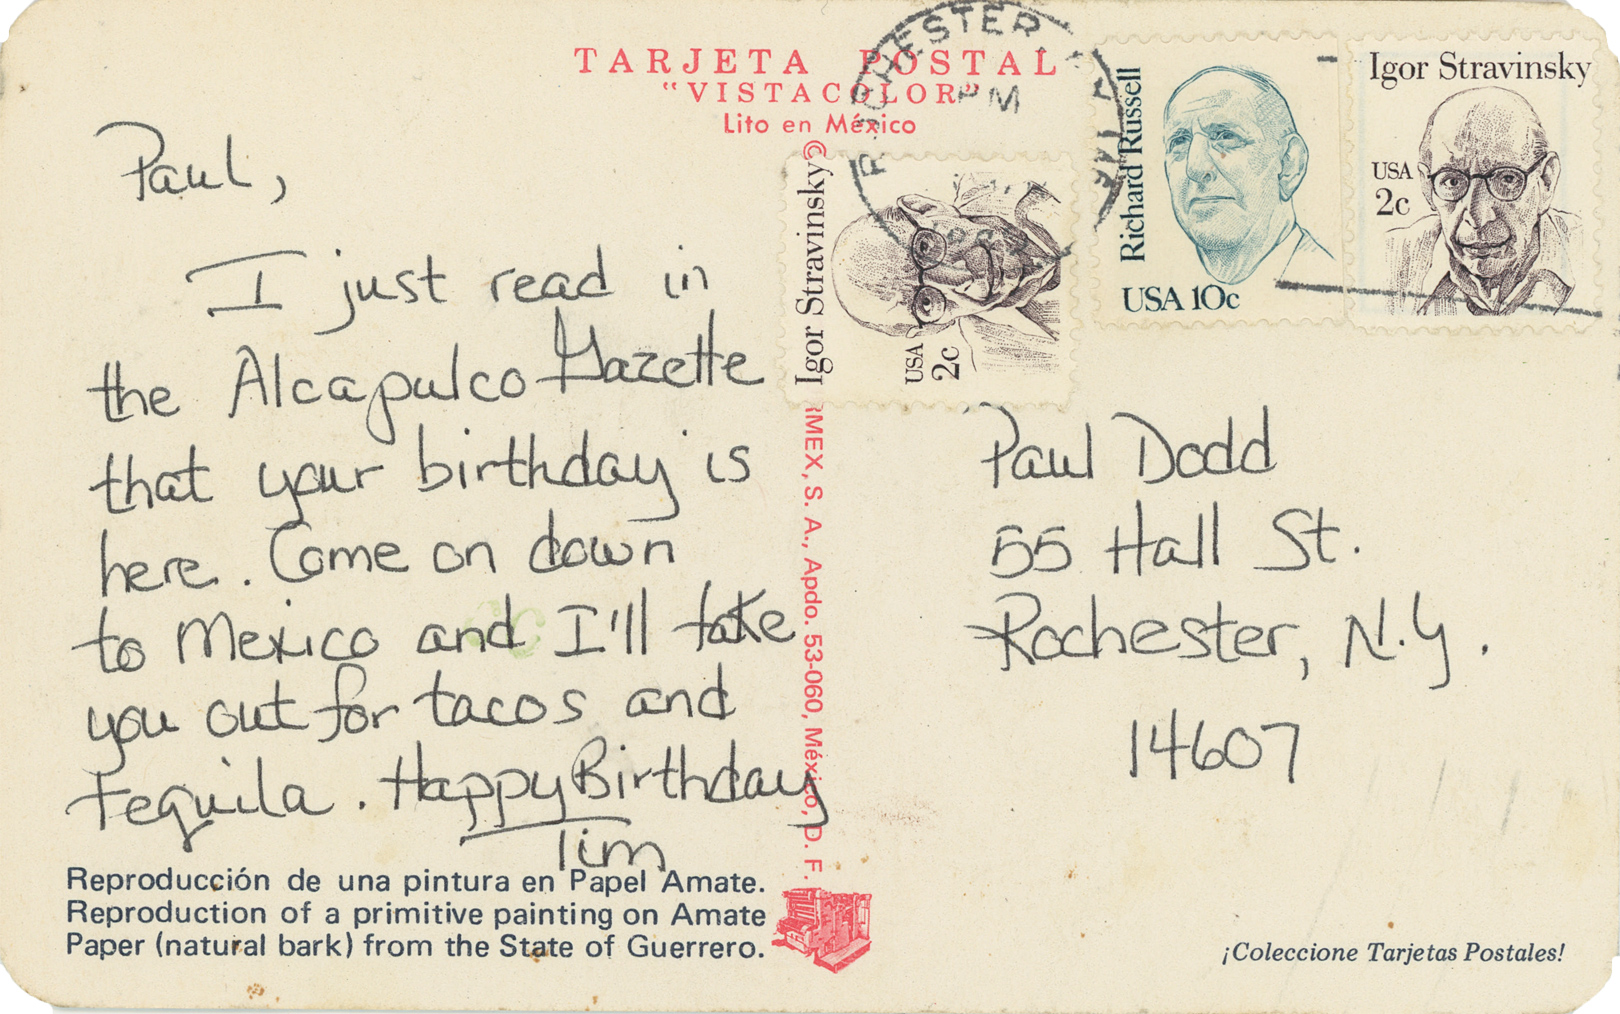 TARJETA POSTAL
"VISTACOLOR"
Lito en México
ROCHESTER
PM
Richard Russell
USA 10c
Igor Stravinsky
USA
2c
Igor Stravinsky
USA
2c
Paul,
I just read in
the Alcapulco Gazette
that your birthday is
here. Come on down
to Mexico and I'll take
you out for tacos and
Tequila. Happy Birthday
Tim
Paul Dodd
55 Hall St.
Rochester, N.Y.
14607
©
MEX, S. A., Apdo. 53-060, México, D. F.
Reproducción de una pintura en Papel Amate.
Reproduction of a primitive painting on Amate
Paper (natural bark) from the State of Guerrero.
¡Coleccione Tarjetas Postales!